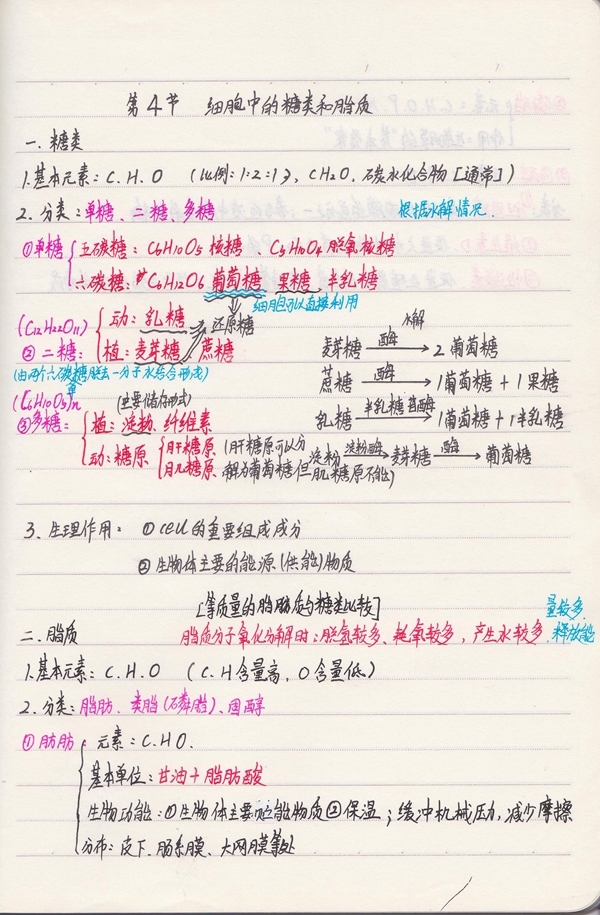 第4节 细胞中的糖类和脂质
一.糖类
1.基本元素:C.H.O (比例:1:2:1⇒, CH2O.碳水化合物[通常])
2.分类:单糖、二糖、多糖 根据水解情况.
①单糖 五碳糖:C5H10O5 核糖、C5H10O4 脱氧核糖
六碳糖:C6H12O6 葡萄糖 果糖.半乳糖
细胞可以直接利用
(C12H22O11) 动:乳糖 还原糖
②二糖: 植:麦芽糖 蔗糖
(由两个六碳单糖脱去一分子水结合形成)
麦芽糖 水解 酶→ 2葡萄糖
蔗糖 酶→ 1葡萄糖+1果糖
乳糖 半乳糖苷酶→ 1葡萄糖+1半乳糖
淀粉 淀粉酶→ 麦芽糖 酶→ 葡萄糖
(C6H10O5)n (主要储存形式)
③多糖: 植:淀粉、纤维素
动:糖原 肝糖原 (肝糖原可以分
肌糖原 解为葡萄糖但肌糖原不能)
3.生理作用: ①cell的重要组成成分
②生物体主要的能源(供能)物质
[等质量的脂肪质与糖类比较]
二.脂质 脂质分子氧化分解时:脱氢较多、耗氧较多,产生水较多.释放能
量较多.
1.基本元素:C.H.O (C.H含量高,O含量低)
2.分类:脂肪、类脂(磷脂)、固醇
①脂肪 元素:C.H.O.
基本单位:甘油+脂肪酸
生物功能:①生物体主要贮能物质②保温;缓冲机械压力,减少摩擦
分布:皮下.肠系膜、大网膜等处